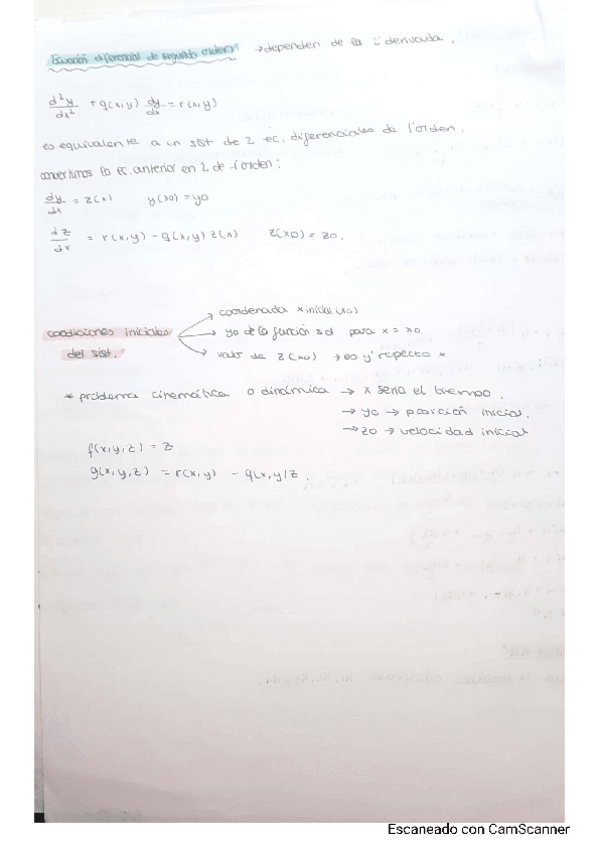 Ecuación diferencial de segundo orden → dependen de la 2ª derivada.
d²y/dx² + q(x,y) dy/dx = r(x,y)
es equivalente a un sist de 2 ec. diferenciales de 1º orden.
convertimos la ec. anterior en 2 de 1º orden:
dy/dx = z(x) y(x0) = y0
dz/dx = r(x,y) - q(x,y) z(x) z(x0) = z0.
condiciones iniciales del sist.
→ coordenada x inicial (x0)
→ y0 de la función sol para x = x0
→ valor de z(x0) → es y' respecto x
* problema cinemática o dinámica → x seria el tiempo.
→ y0 → posición inicial.
→ z0 → velocidad inicial
f(x,y,z) = z
g(x,y,z) = r(x,y) - q(x,y)z.
Escaneado con CamScanner